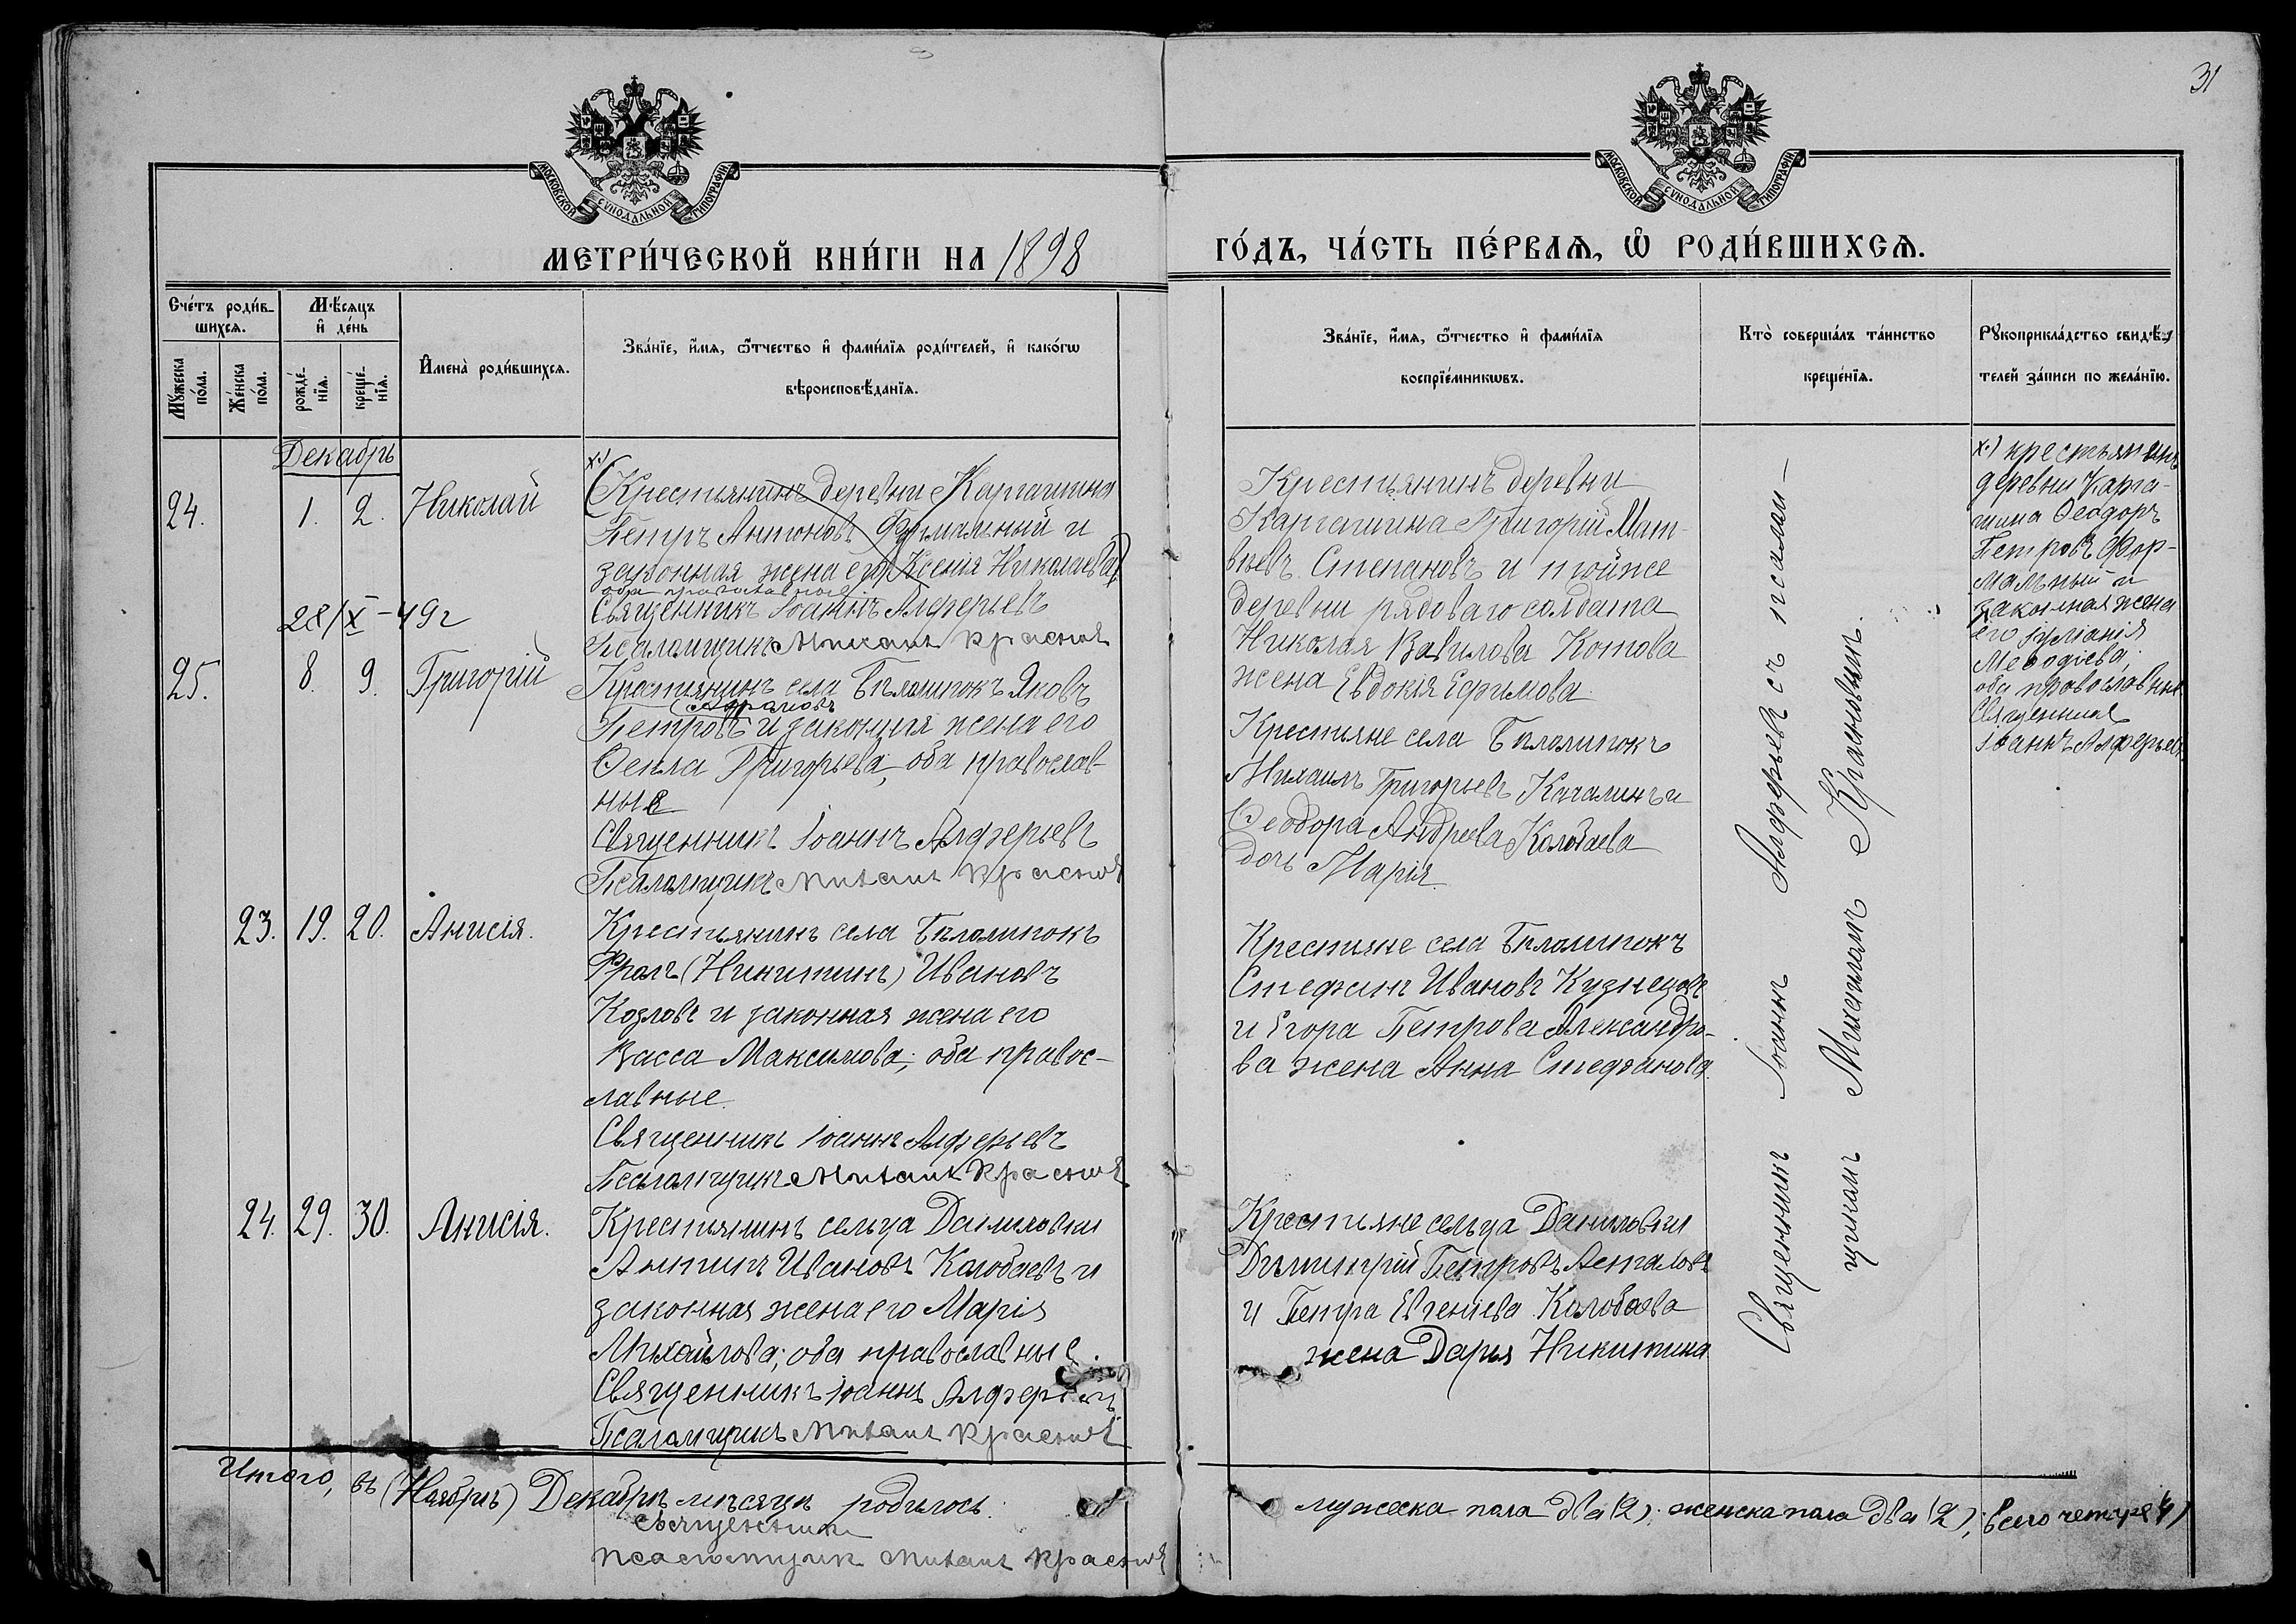 31
МОСКОВСКОЙ СѴНОДАЛЬНОЙ ТИПОГРАФІИ
МОСКОВСКОЙ СѴНОДАЛЬНОЙ ТИПОГРАФІИ
МЕТРИ́ЧЕСКОЙ КНИ́ГИ НА 1898
ГО́ДЪ, ЧА́СТЬ ПЕ́РВАѦ, Ѽ РОДИ́ВШИХСѦ.
Сче́тъ роди́в-
шихсѧ.
Мꙋ́жеска по́ла.
Же́нска по́ла.
Мѣ́сѧцъ
и҆ де́нь
рожде́-
нїѧ.
креще́-
нїѧ.
И҆мена̀ роди́вшихсѧ.
Зва́нїе, и҆́мѧ, ѻ҆́тчество и҆ фами́лїѧ роди́телей, и҆ како́гѡ
вѣроисповѣ́данїѧ.
Зва́нїе, и҆́мѧ, ѻ҆́тчество и҆ фами́лїѧ
воспрїе́мникѡвъ.
Кто̀ соверша́лъ та́инство
креще́нїѧ.
Рꙋкоприкла́дство свидѣ́-
телей за́писи по жела́нїю.
Декабрь
24. 1. 2. Николай
х.)
(Крестьянинъ деревни Каргашина
Петръ Антоновъ Формальный и
законная жена его Ксенія Николаева)
оба православные.
Священникъ Іоаннъ Алферьевъ
Псаломщикъ Михаилъ Красновъ
28/X-49г
Крестьянинъ деревни
Каргашина Григорій Мат-
вѣевъ Степановъ и тойже
деревни рядоваго солдата
Николая Вавилова Котова
жена Евдокія Ефимова.
х.) крестьянинъ
деревни Карга-
шина Ѳеодоръ
Петровъ Фор-
мальный и
законная жена
его Іуліанія
Меѳодіева,
оба православные
Священникъ
Іоаннъ Алферьевъ
25. 8. 9. Григорій
Крестьянинъ села Бѣломутокъ Яковъ
Петровъ и законная жена его
Ѳекла Григорьева, оба православ-
ные
Священникъ Іоаннъ Алферьевъ
Псаломщикъ Михаилъ Красновъ
Крестьяне села
Михаилъ Григорьевъ Качалинъ и
Ѳеодора Андреева Колобаева
дочь Марія.
23. 19. 20. Анисія.
Крестьянинъ села
Фролъ (Никитинъ) Ивановъ
Козловъ и законная жена его
Васса Максимова; оба правос-
лавные.
Священникъ Іоаннъ Алферьевъ
Псаломщикъ Михаилъ Красновъ
Крестьяне села
Стефанъ Ивановъ Кузнецовъ
и Егора Петрова Александро-
ва жена Анна Стефанова.
24. 29. 30. Анисія.
Крестьянинъ сельца Даниловки
Антипъ Ивановъ Колобаевъ и
законная жена его Марія
Михайлова; оба православные.
Священникъ Іоаннъ Алферьевъ
Псаломщикъ Михаилъ Красновъ
Крестьяне сельца Даниловки
Димитрій Петровъ Асталовъ
и Петра Евгеніева Колобаева
жена Дарья Никитина
Священникъ Іоаннъ Алферьевъ съ псалом-
щикомъ Михаиломъ Красновымъ.
Итого, въ (Ноябрѣ) Декабрѣ мѣсяцѣ родилось:
мужеска пола два (2); женска пола два (2); всего четыре (4)
Священникъ
псаломщикъ Михаилъ Красновъ